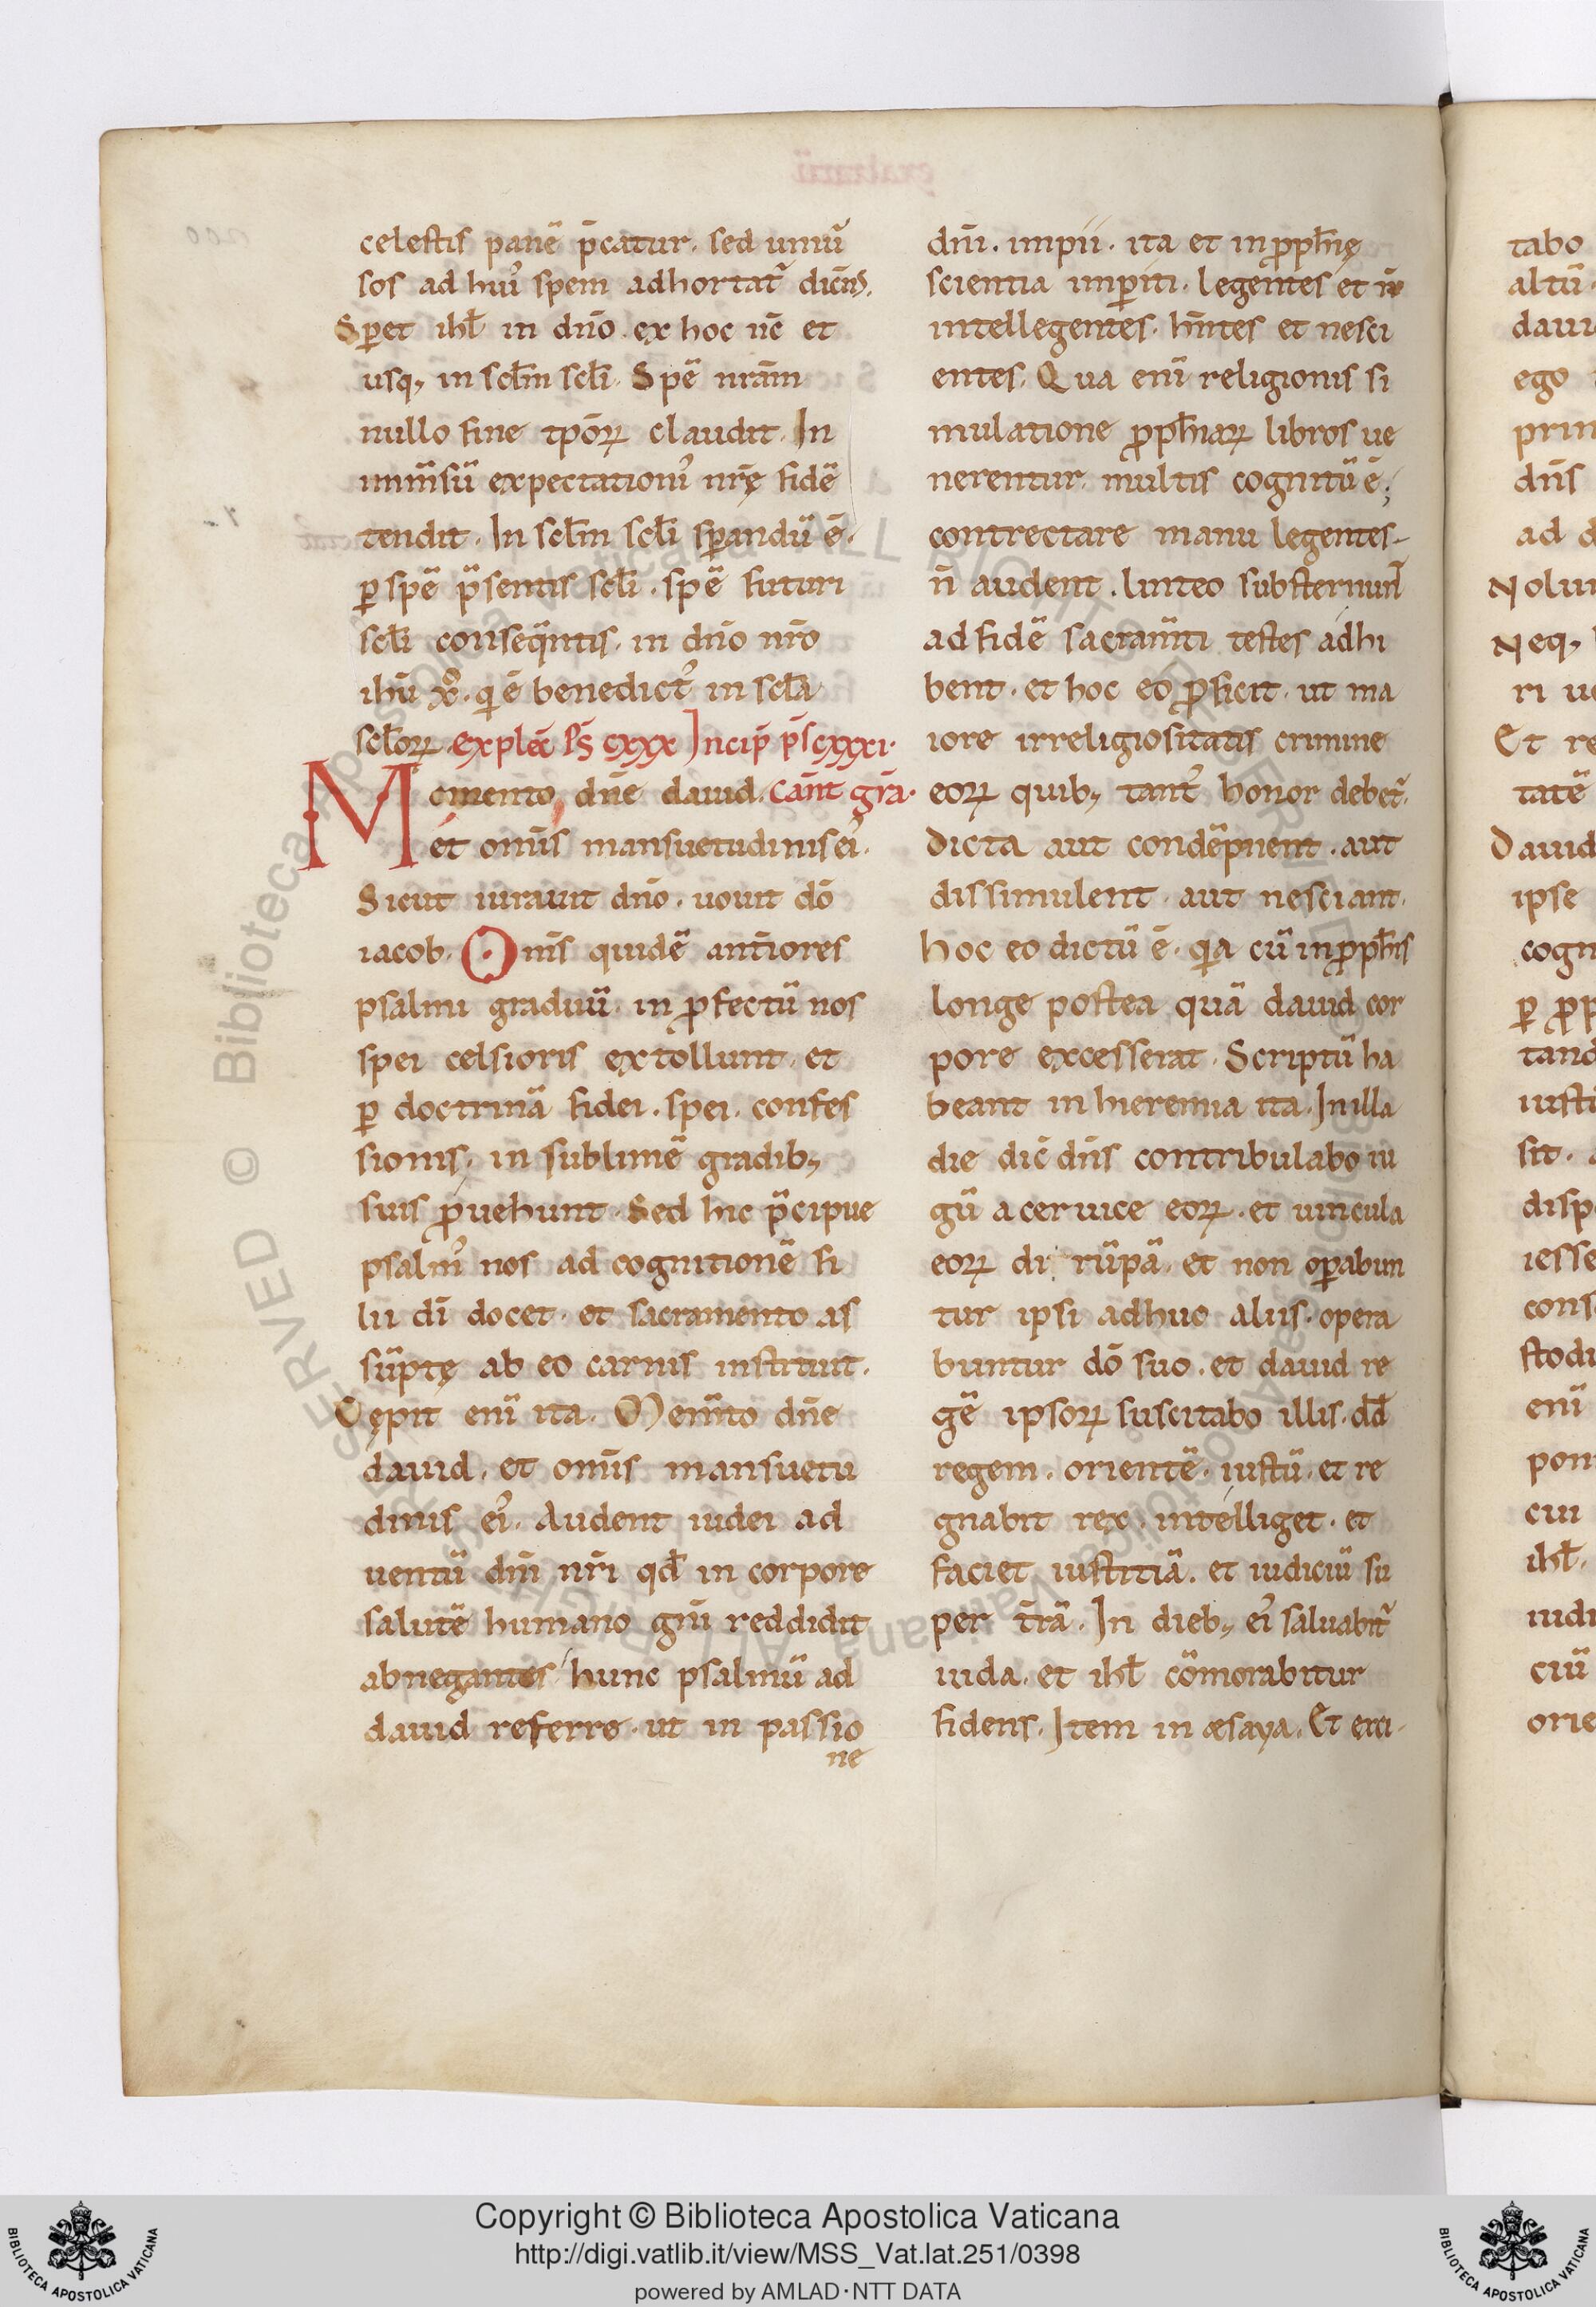 celestis panē p̄catur. sed uniuͥ
sos ad huꝰ spem adhortat᷑ dicn̄s.
Sꝑet ihl̄ in dn̄o. ex hoc nc̄ et
usq; in scl̄m scl̄i. Spē nr̄am
nullo fine tp̄oꝝ claudit. In
inm̄sū expectationiꝰ nr̄ę fidē
tendit. In scl̄m scl̄i sꝑandū ē.
ꝑ spē p̄sentis scl̄i. spē futuri
scl̄i conseqn̄tis. in dn̄o nr̄o
ihū xp̄o. qi ē benedictꝰ in scl̄a
scl̄oꝝ. explec̄ Ps̄ cxxx Incip̄ p̄s cxxxi.
Memento dn̄e dauid. cān̄t grā.
et om̄is mansuetudinis eiꝰ.
Sicut iurauit dn̄o. uouit dō
iacob. Om̄s quidē ant̄iores
psalmi graduū. in ꝓfectū nos
spei celsioris extollunt. et
ꝑ doctrinā fidei. spei. confes
sionis. in sublimē gradib;
suis ꝓuehunt. Sed hic p̄cipue
psalmꝰ nos ad cognitionē fi
lii dī docet. et sacramento as
sūptę ab eo carnis instituit.
Cępit enī ita. Mem̄to dn̄e
dauid. et om̄is mansuetu
dinis eiꝰ. Audent iudei ad
uentū dn̄i nr̄i qd̄ in corpore
salutē humano gn̄i reddidit
abnegantes hunc psalmū ad
dauid referre. ut in passio
ne
dn̄i. impii. ita et in ꝓph̄ię
scientia imꝑiti. legentes et n̄
intellegentes. hn̄tes et nesci
entes. Qua enī religionis si
mulatione ꝓph̄iaꝝ libros ue
nerentur. multis cognitū ē;
contrectare manu legentes
n̄ audent. linteo substernunt᷑
ad fidē sacram̄ti testes adhi
bent. et hoc eo ꝓficit. ut ma
iore irreligiositatis crimine
eoꝝ quib; tantꝰ honor debet᷑.
dicta aut condēpnent. aut
dissimulent. aut nesciant.
hoc eo dictū ē. qia cū in ꝓph̄is
longe postea quā dauid cor
pore excesserat. Scriptū ha
beant in hieremia ita. In illa
die dic̄ dn̄s contribulabo iu
gū a ceruice eoꝝ. et uincula
eoꝝ di rūpā. et non oꝑabun
tur ipsi adhuc aliis. opera
buntur dō suo. et dauid re
gē ipsoꝝ suscitabo illis. dd̄
regem. orientē. iustū. et re
gnabit rex. intelliget. et
faciet iustitiā. et iudiciū su
per t̄rā. In dieb; eiꝰ saluabit᷑
iuda. et ihl̄ cōmorabitur
fidens. Item in æsaya. Et exi
tabo
altū
daui
ego
prin
dn̄s
ad d
Nolui
Neq;
ri ue
Et re
tatē
Dauid
ipse
cogn
ꝑ ꝓp
tand
iusti
sit.
disp
iesse
cons
stodi
enī
pon
cui
ihl̄.
iudi
ciū
orie
Copyright © Biblioteca Apostolica Vaticana
http://digi.vatlib.it/view/MSS_Vat.lat.251/0398
powered by AMLAD·NTT DATA
BIBLIOTECA APOSTOLICA VATICANA
BIBLIOTECA APOSTOLICA VATICANA